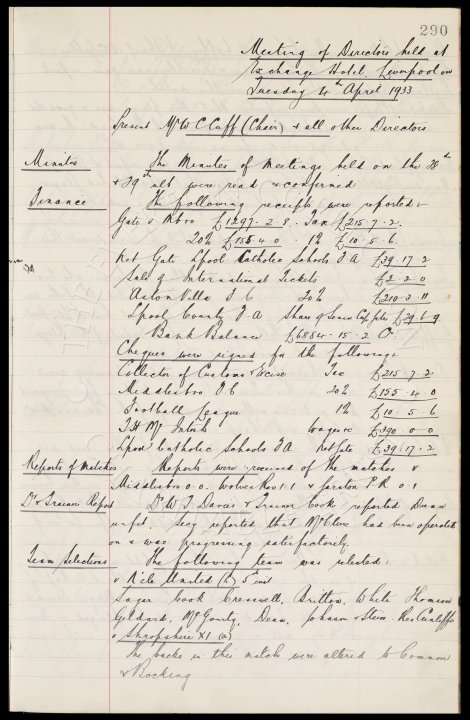 290
Meeting of Directors held at
Exchange Hotel, Liverpool on
Tuesday 4th April 1933
Present Mr W C Cuff (Chair) + all other Directors
Minutes The Minutes of Meetings held on the 28th
+ 29th ult were read + confirmed
Finance The following receipts were reported:-
Gate v M'bro £1297. 2. 8. Tax £215. 7. 2.
20% £155. 4. 0 1% £10. 5. 6.
Net Gate Lpool Catholic Schools F A £39. 17. 2
Sale of International Tickets £2. 2. 0
Aston Villa F C 20% £210. 3. 11
Lpool County F A Share of Senior Cup £29. 6. 9
Bank Balance £6884. 15. 2
Cheques were signed for the following:
Collector of Customs & Excise Tax £215. 7. 2
Middlesbro F.C. 20% £155. 4. 0
Football League 1% £10. 5. 6
T. H. McIntosh Wages £390. 0. 0
Lpool Catholic Schools F A Net Gate £39. 17. 2
Reports of Matches Reports were received of the matches v
Middlesbro 0. 0. Wolves Res 1. 1 + P R 0. 1
Dr & Trainer Report Dr W J Davies & Trainer Cook reported Dunn
unfit. Secy reported that had been operated
on + was progressing satisfactorily.
Team Selections The following team was selected:
v Newcastle United (h) 5 inst
Sagar Cook Cresswell, Britton, White Thomson
Geldard, McGourty, Dean, Johnson + Stein. Res Cunliffe
v Shropshire XI (a)
The backs in this match were altered to Common
& Bocking